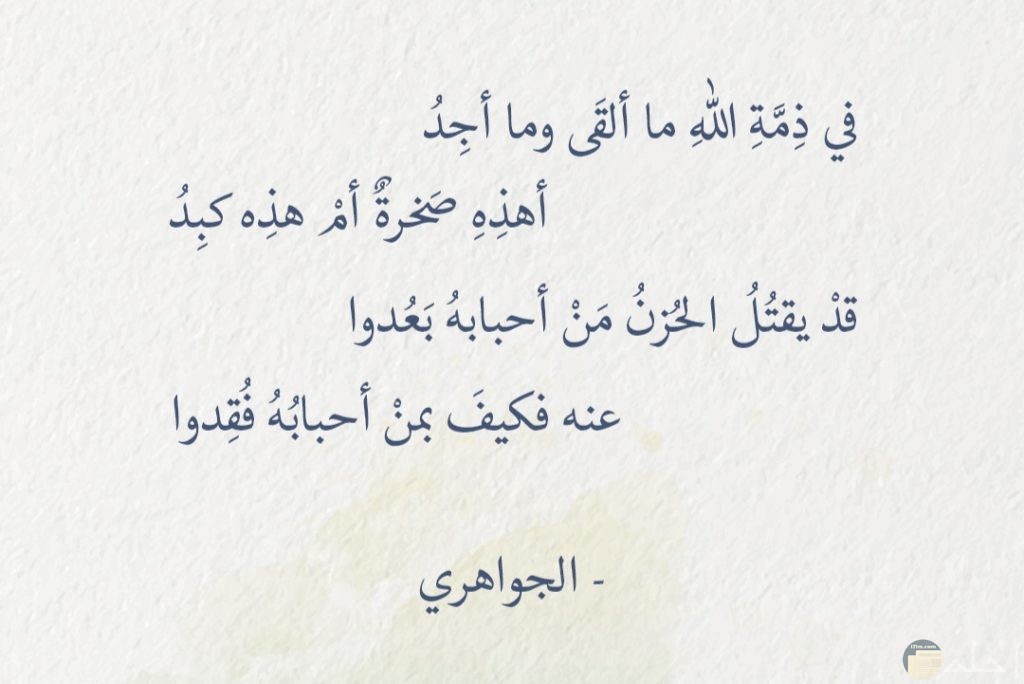 في ذِمَّةِ اللهِ ما ألقَى وما أجِدُ
أهذِهِ صَخرةٌ أمْ هذِه كبِدُ
قدْ يقتُلُ الحُزنُ مَنْ أحبابهُ بَعُدوا
عنه فكيفَ بمنْ أحبابُهُ فُقِدوا
- الجواهري